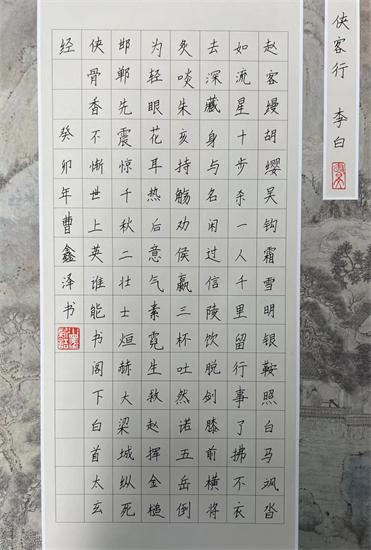 侠客行 李白
赵客缦胡缨吴钩霜雪明银鞍照白马飒沓
如流星十步杀一人千里留行事了拂不衣
去深藏身与名闲过信陵饮脱剑膝前横将
炙啖朱亥持觞劝侯嬴三杯吐然诺五岳倒
为轻眼花耳热后意气素霓生救赵挥金槌
邯郸先震惊千秋二壮士烜赫大梁城纵死
侠骨香不惭世上英谁能书阁下白首太玄
经 癸卯年曹鑫泽书